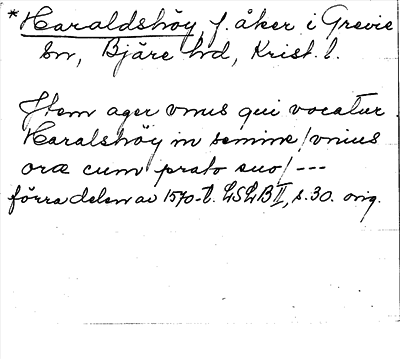 *Haraldshöy, f. åker i Grevie
sn, Bjäre hd, Krist. l.
Item ager vnus qui vocatur
Haralshöy in semine/vnius
oræ cum prato suo/---
förra delen av 1570-t. LSLB II, s. 30. orig.